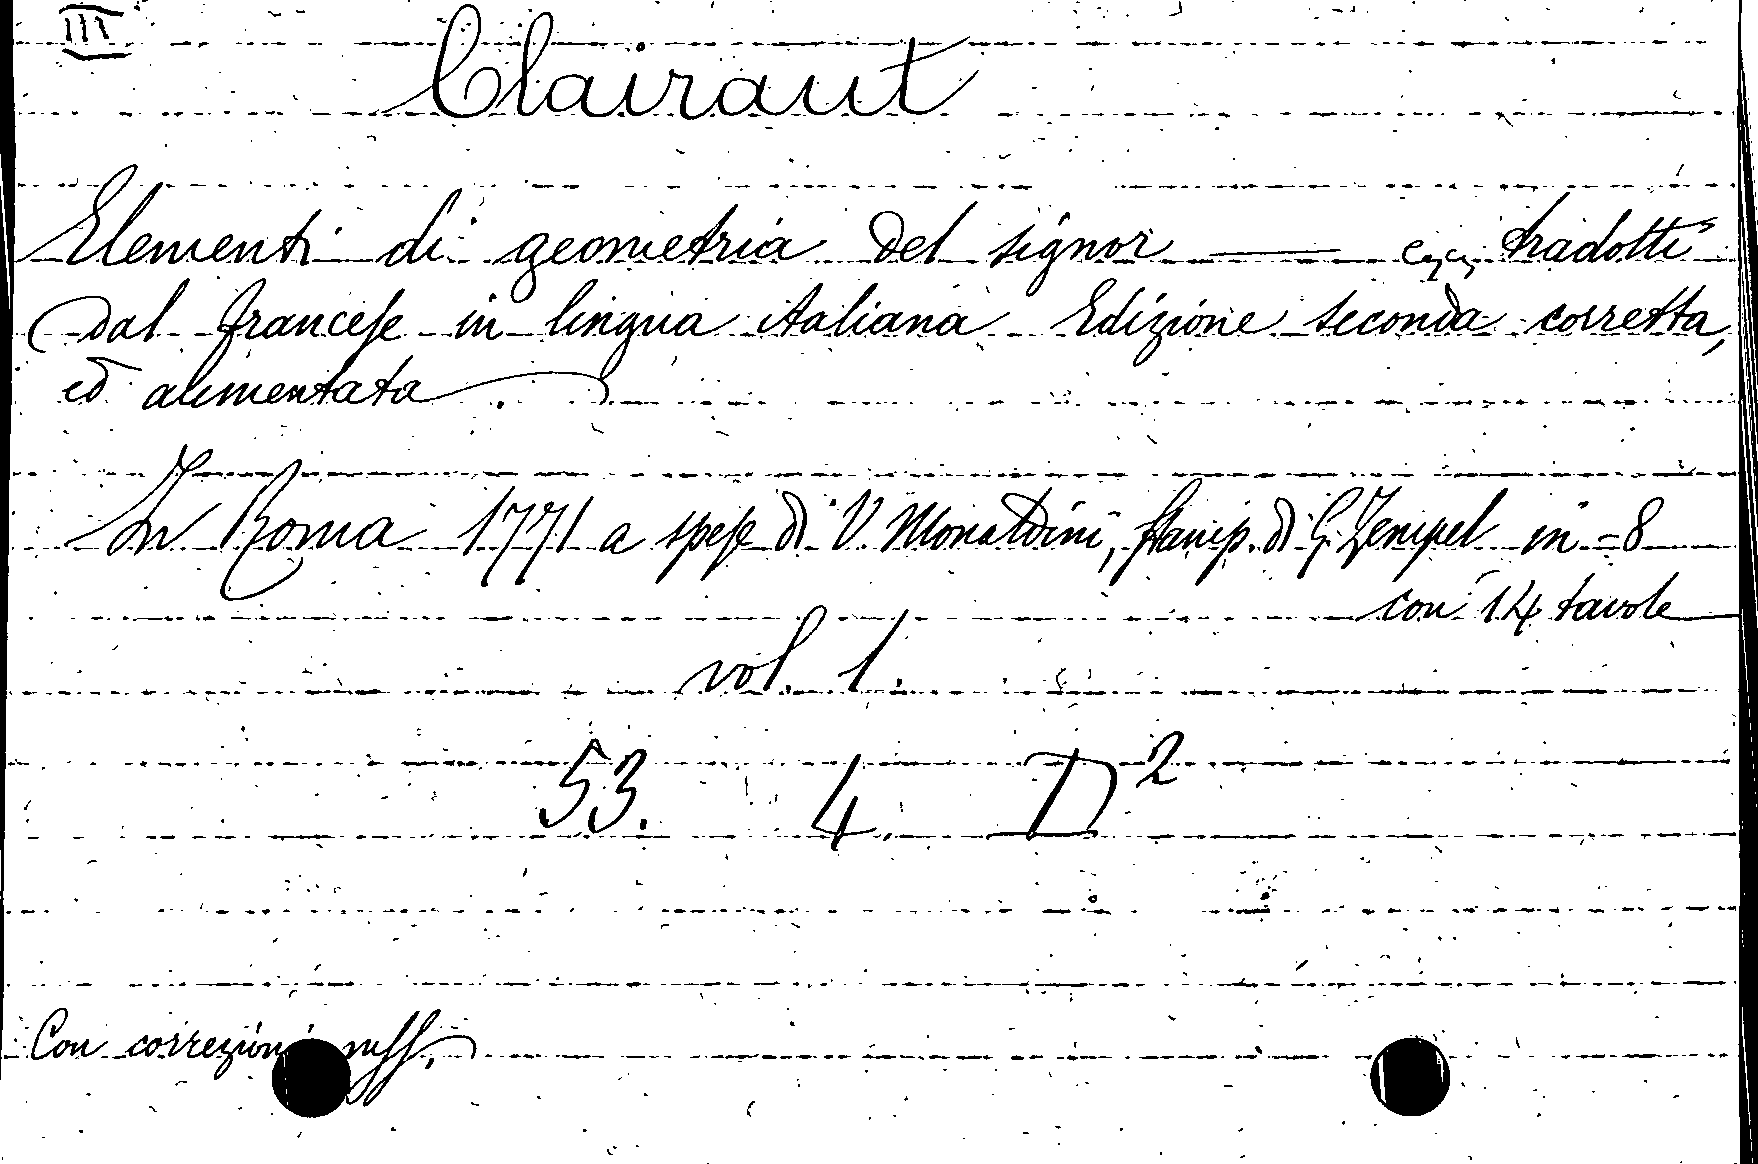 III
Clairaut
Elementi di geometria del signor —— tradotti
dal francese in lingua italiana Edizione seconda corretta,
ed alimentata.
In Roma 1771 a spese di V. Monaldini, stamp. di G. Zempel in-8
con 14 tavole
vol. 1.
53. 4. D²
Con correzioni mss.